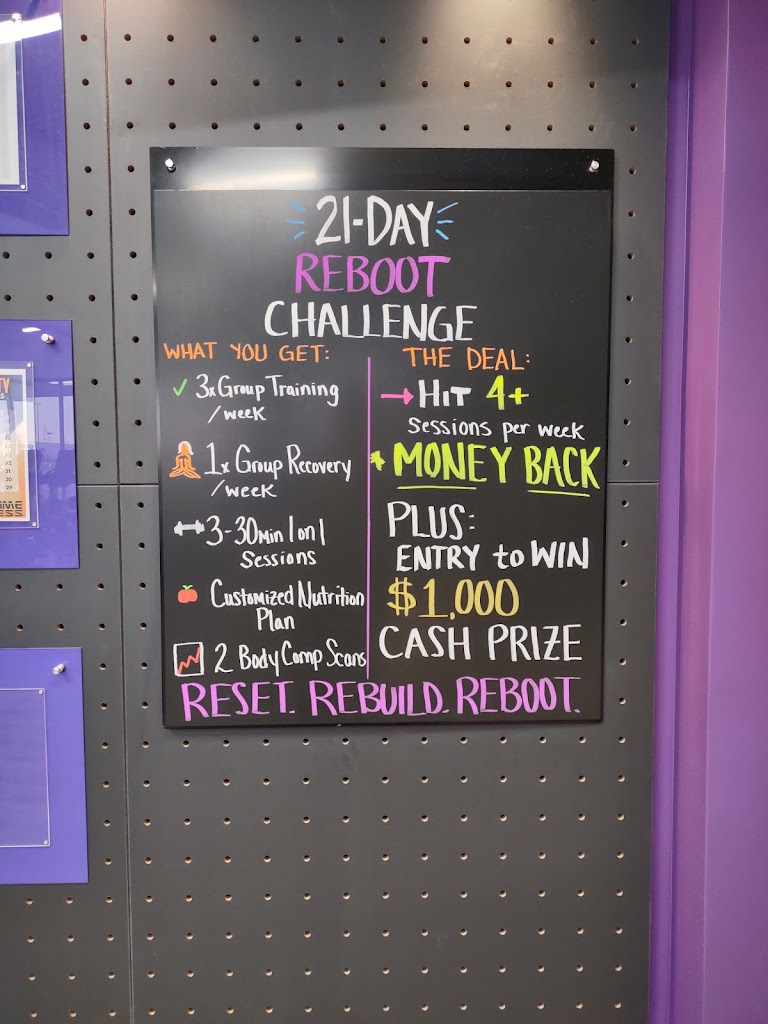 21-DAY
REBOOT
CHALLENGE
WHAT YOU GET:
3x Group Training
/week
1x Group Recovery
/week
3-30Min 1 on 1
Sessions
Customized Nutrition
Plan
2 Body Comp Scans
THE DEAL:
HIT 4+
Sessions per week
MONEY BACK
PLUS:
ENTRY to WIN
$1,000
CASH PRIZE
RESET. REBUILD. REBOOT.